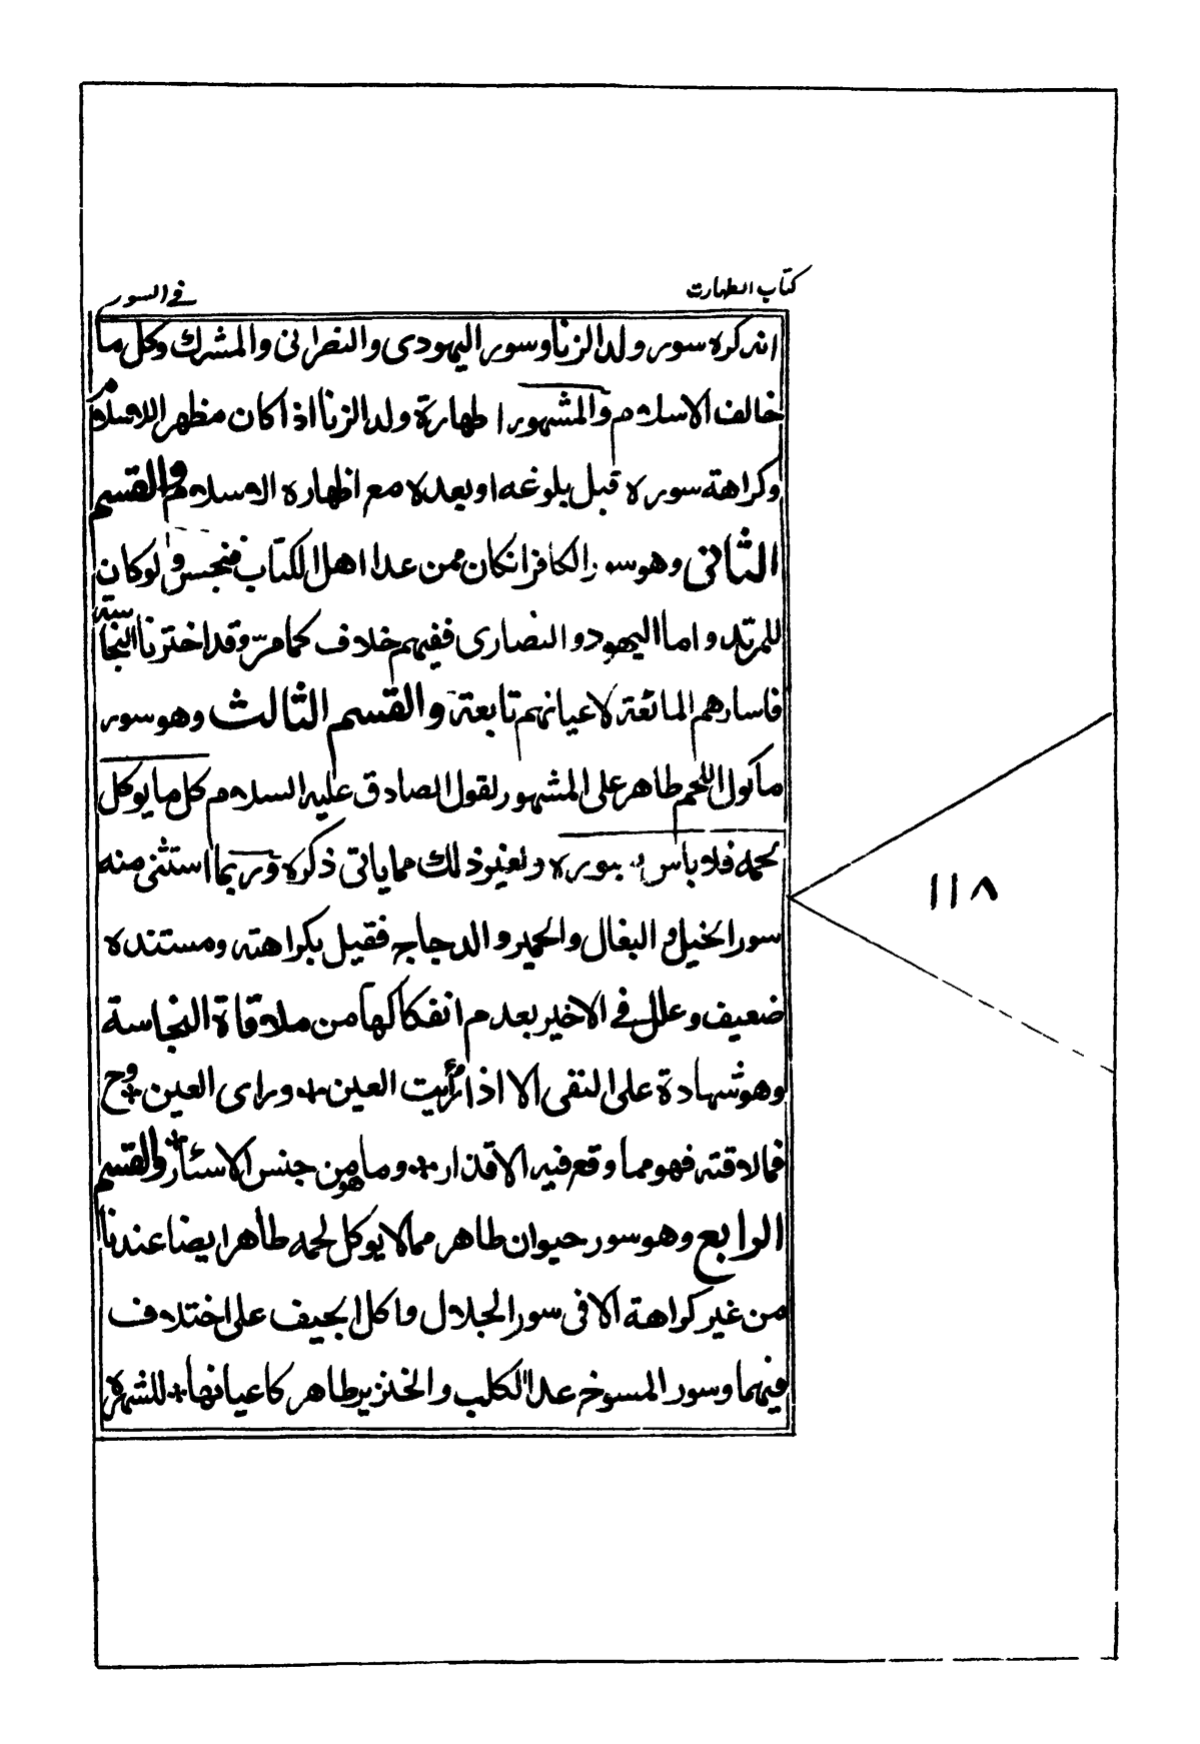 كتاب الطهارت
في السور
انه كره سور ولد الزنا وسور اليهودى والنصرانى والمشرك وكل ما
خالف الاسلام والمشهور طهارة ولد الزنا اذا كان مظهر اللاسلام
وكراهة سوره قبل بلوغه او بعده مع اظهاره الاسلام والقسم
الثانى وهو سور الكافر انكان ممن عدا اهل الكتاب فنجس ولو كان
للمرتد واما اليهود والنصارى ففيهم خلاف كما مرّ وقد اخترنا النجاسية
فاسارهم المائعة لاعيانهم تابعة والقسم الثالث وهو سور
ماكول اللحم طاهر على المشهور لقول الصادق عليه السلام كل ما يوكل
لحمه فلا باس بسوره ولغير ذلك مما ياتى ذكره وربما استثنى منه
سور الخيل والبغال والحمير والدجاجه فقيل بكراهته ومستنده
ضعيف وعلل في الاخير بعدم انفكاكها من ملاقاة النجاسة
وهو شهادة على النفى الا اذا رأيت العين وراى العين وح
فمالاقته فهو مما وقع فيه الاقذار وما هو من جنس الاسئار والقسم
الرابع وهو سور حيوان طاهر مما لا يوكل لحمه طاهر ايضا عندنا
من غير كراهة الا فى سور الجلال واكل الجيف على اختلاف
فيهما وسور المسوخ عدا الكلب والخنزير طاهر كاعيانها للشهرة
١١٨